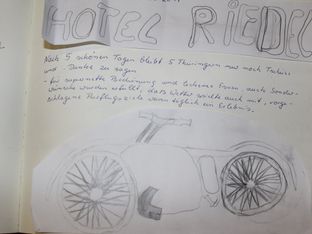 HOTEL RIEDEL
Nach 5 schönen Tagen bleibt 5 Thüringern nur noch Tschüss
und - Danke zu sagen
- für supernette Bedienung und leckeres Essen, auch Sonder-
wünsche wurden erfüllt, das Wetter spielte auch mit, vorge-
schlagene Ausflugsziele waren täglich ein Erlebnis.